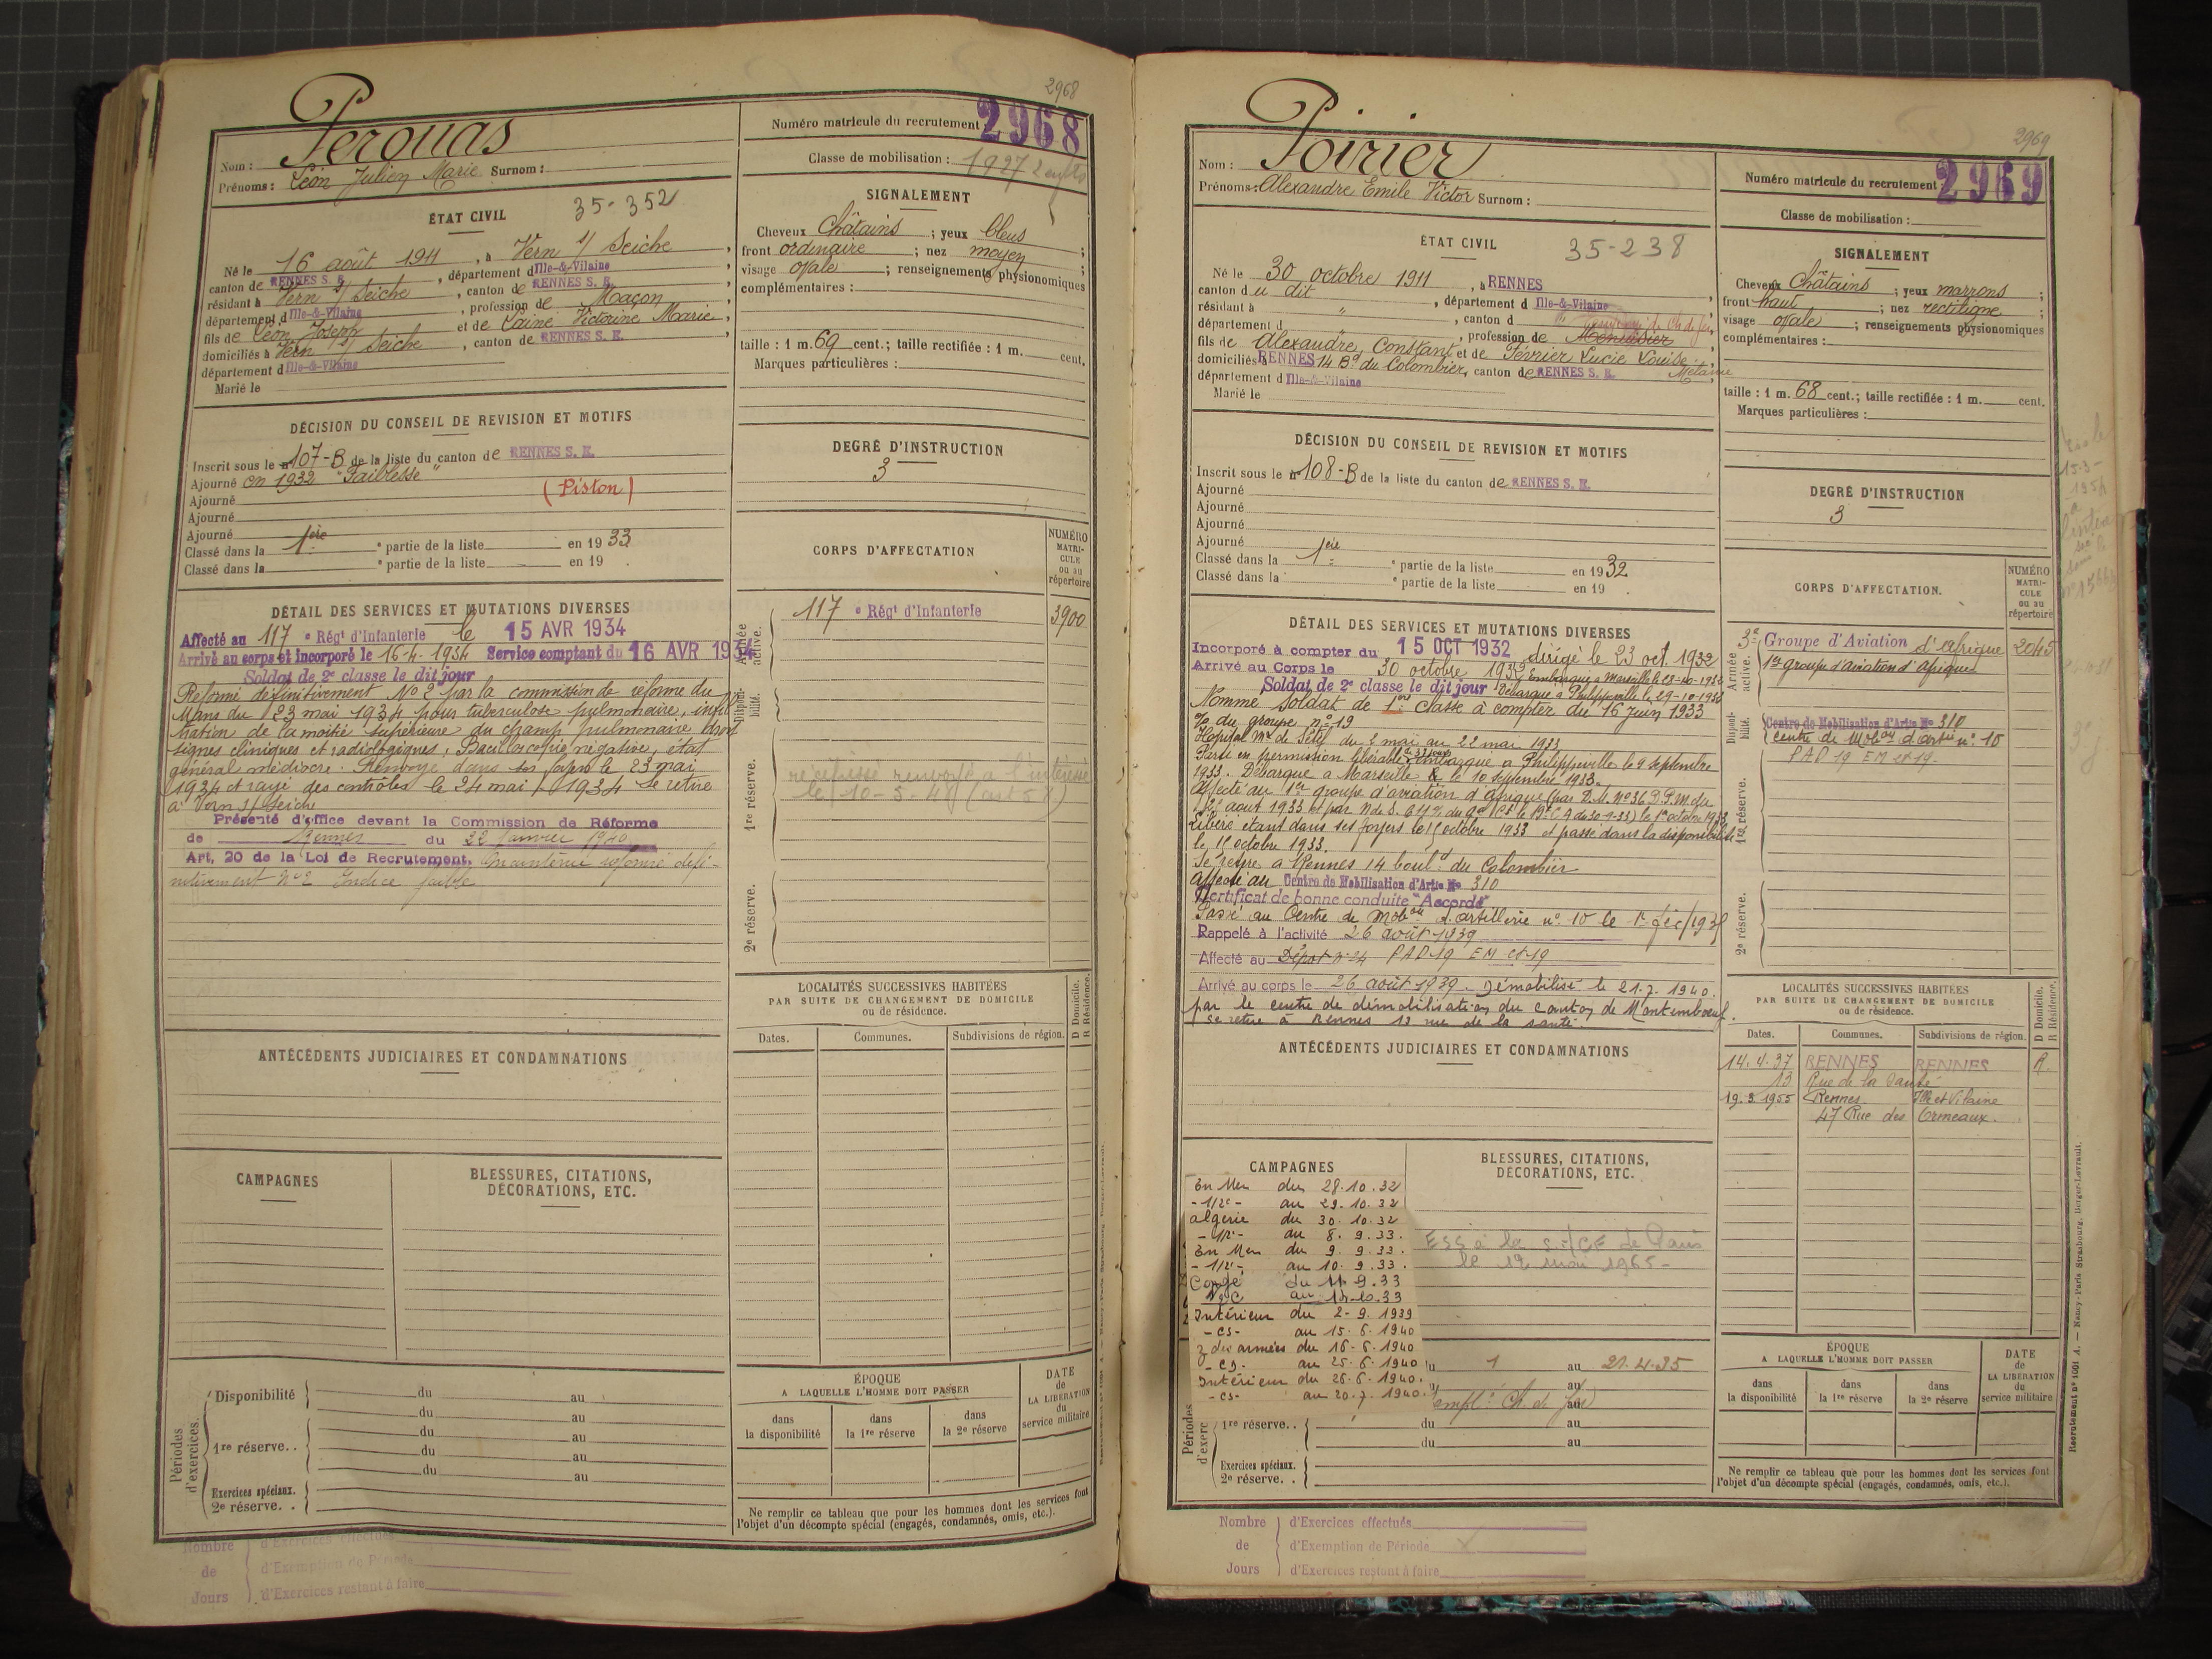 2968
Perouas
Nom :
Prénoms : Léon Julien Marie Surnom :
Numéro matricule du recrutement 2968
Classe de mobilisation : 1927
ÉTAT CIVIL 35-352
Né le 16 août 1911, à Vern s/ Seiche,
canton de RENNES S. E., département d Ille-&-Vilaine
résidant à Vern s/ Seiche, canton de RENNES S. E.,
département d Ille-&-Vilaine, profession de Maçon,
fils de Léon Joseph et de Lainé Victorine Marie,
domiciliés à Vern s/ Seiche, canton de RENNES S. E.
département d Ille-&-Vilaine
Marié le
SIGNALEMENT
Cheveux Châtains ; yeux bleus ;
front ordinaire ; nez moyen ;
visage ovale ; renseignements physionomiques
complémentaires :
taille : 1 m. 69 cent.; taille rectifiée : 1 m. cent.
Marques particulières :
DÉCISION DU CONSEIL DE REVISION ET MOTIFS
Inscrit sous le n° 107-B de la liste du canton de RENNES S. E.
Ajourné en 1932 "Faiblesse"
Ajourné (Piston)
Ajourné
Ajourné
Classé dans la 1ère partie de la liste en 1933
Classé dans la e partie de la liste en 19 .
DEGRÉ D'INSTRUCTION
3
CORPS D'AFFECTATION
NUMÉRO MATRICULE ou au répertoire
Armée active.
117 e Régt d'Infanterie 3900
Disponibilité.
1re réserve.
récépissé renvoyé à l'intéressé
le 10-5-48 (art 58)
2e réserve.
DÉTAIL DES SERVICES ET MUTATIONS DIVERSES
Affecté au 117 e Régt d'Infanterie le 15 AVR 1934
Arrivé au corps et incorporé le 16-4-1934 Service comptant du 16 AVR 1934
Soldat de 2e classe le dit jour
Réformé définitivement N° 2 par la commission de réforme du
Mans du 23 mai 1934 pour tuberculose pulmonaire, infil
tration de la moitié supérieure du champ pulmonaire droit
signes cliniques et radiologiques. Bacilloscopie négative, état
général médiocre. Renvoyé dans ses foyers le 23 mai
1934 et rayé des contrôles le 24 mai 1934 se retire
à Vern s/ Seiche
Présenté d'office devant la Commission de Réforme
de Rennes du 22 Janvier 1940
Art. 20 de la Loi de Recrutement. Maintenu réformé défi-
nitivement N° 2 Indice faible
LOCALITÉS SUCCESSIVES HABITÉES
PAR SUITE DE CHANGEMENT DE DOMICILE
ou de résidence.
D Domicile.
R Résidence.
Dates. Communes. Subdivisions de région.
ANTÉCÉDENTS JUDICIAIRES ET CONDAMNATIONS
CAMPAGNES
BLESSURES, CITATIONS,
DÉCORATIONS, ETC.
Périodes d'exercices.
Disponibilité du au
du au
1re réserve. . du au
du au
du au
Exercices spéciaux.
2e réserve. .
ÉPOQUE
A LAQUELLE L'HOMME DOIT PASSER
dans la disponibilité
dans la 1re réserve
dans la 2e réserve
DATE de LA LIBÉRATION du service militaire
Ne remplir ce tableau que pour les hommes dont les services font
l'objet d'un décompte spécial (engagés, condamnés, omis, etc.).
Nombre de Jours
d'Exercices effectués
d'Exemption de Période
d'Exercices restant à faire
2969
Poirier
Nom :
Prénoms : Alexandre Emile Victor Surnom :
Numéro matricule du recrutement : 2969
Classe de mobilisation :
ÉTAT CIVIL 35-238
Né le 30 octobre 1911, à RENNES,
canton du dit, département d Ille-&-Vilaine
résidant à ", canton d
département d, profession de Menuisier,
fils de Alexandre, Constant et de Février Lucie Louise Mélanie
domiciliés à RENNES 14 Bd du Colombier, canton de RENNES S. E.
département d Ille-&-Vilaine
Marié le
SIGNALEMENT
Cheveux Châtains ; yeux marrons ;
front haut ; nez rectiligne ;
visage ovale ; renseignements physionomiques
complémentaires :
taille : 1 m. 68 cent.; taille rectifiée : 1 m. cent.
Marques particulières :
DÉCISION DU CONSEIL DE REVISION ET MOTIFS
Inscrit sous le n° 108-B de la liste du canton de RENNES S. E.
Ajourné
Ajourné
Ajourné
Ajourné
Classé dans la 1ère partie de la liste en 1932
Classé dans la e partie de la liste en 19 .
DEGRÉ D'INSTRUCTION
3
CORPS D'AFFECTATION.
NUMÉRO MATRICULE ou au répertoire
Armée active.
3e Groupe d'Aviation d'Afrique 2045
1er groupe d'aviation d'Afrique
Disponibilité.
Centre de Mobilisation d'Artie No 310
centre de Mobon d'artie n° 10
PAD 19 EM et 19.
1re réserve.
2e réserve.
DÉTAIL DES SERVICES ET MUTATIONS DIVERSES
Incorporé à compter du 15 OCT 1932 dirigé le 23 oct. 1932
Arrivé au Corps le 30 octobre 1932 Embarqué à Marseille le 28-10-1932
Soldat de 2e classe le dit jour Débarqué à Philippeville le 29-10-1932
Nommé Soldat de 1ère Classe à compter du 16 Juin 1933
O. du groupe n° 19
Hôpital Mre de Sétif du 2 mai au 22 mai 1933
Parti en permission libérable embarqué à Philippeville le 9 septembre
1933. Débarqué à Marseille le 10 septembre 1933.
Affecté au 1er groupe d'aviation d'Afrique
Libéré étant dans ses foyers le 15 octobre 1933 et passé dans la disponibilité
le 15 octobre 1933.
Se retire à Rennes 14 bould du Colombier
Affecté au Centre de Mobilisation d'Artie No 310
Certificat de bonne conduite "Accordé"
Passé au Centre de Mobon d'artillerie n° 10 le
Rappelé à l'activité 26 août 1939
Affecté au Dépôt n° 24 PAD 19 EM et 19
Arrivé au corps le 26 août 1939. Démobilisé le 21.7.1940.
par le centre de démobilisation du canton de Montembœuf.
Se retire à Rennes 13 rue de la santé.
LOCALITÉS SUCCESSIVES HABITÉES
PAR SUITE DE CHANGEMENT DE DOMICILE
ou de résidence.
D Domicile.
R Résidence.
Dates. Communes. Subdivisions de région.
14.4.37 RENNES RENNES R.
13 Rue de la Santé
19.3.1955 Rennes Ille et Vilaine
47 Rue des Ormeaux.
ANTÉCÉDENTS JUDICIAIRES ET CONDAMNATIONS
CAMPAGNES
En Mer du 28.10.32
-1/2c- au 29.10.32
Algérie du 30.10.32
-1/2c- au 8.9.33.
En Mer du 9.9.33.
-1/2c- au 10.9.33.
Congé du 11.9.33
Intérieur du 2-9.1939
-CS- au 15.6.1940
Z. des armées du 16-6.1940
-CD- au 25.6.1940
Intérieur du 26-6.1940.
-CS- au 20.7.1940.
BLESSURES, CITATIONS,
DÉCORATIONS, ETC.
ESS à la SNCF de Paris
le 12 mai 1965-
Périodes d'exerc
1 au 21.4.35
au
1re réserve. . du au
du au
Exercices spéciaux.
2e réserve. .
ÉPOQUE
A LAQUELLE L'HOMME DOIT PASSER
dans la disponibilité
dans la 1re réserve
dans la 2e réserve
DATE de LA LIBÉRATION du service militaire
Ne remplir ce tableau que pour les hommes dont les services font
l'objet d'un décompte spécial (engagés, condamnés, omis, etc.).
Recrutement n° 1001 A. — Nancy-Paris-Strasbourg, Berger-Levrault.
Nombre de Jours
d'Exercices effectués
d'Exemption de Période
d'Exercices restant à faire